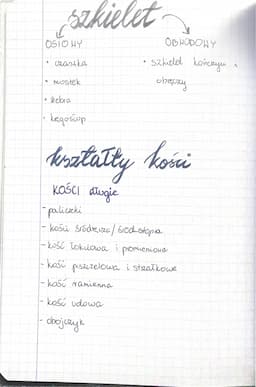 szkielet
OSIOWY
OBWODOWY
• czaszka
• mostek
• żebra
• kręgosłup
• szkielet kończyn i
obręczy
kształty kości
KOŚCI długie
- paliczki
- kości śródręcza / śródstopia
- kość łokciowa i promieniowa
- kość piszczelowa i strzałkowa
- kość ramienna
- kość udowa
- obojczyk